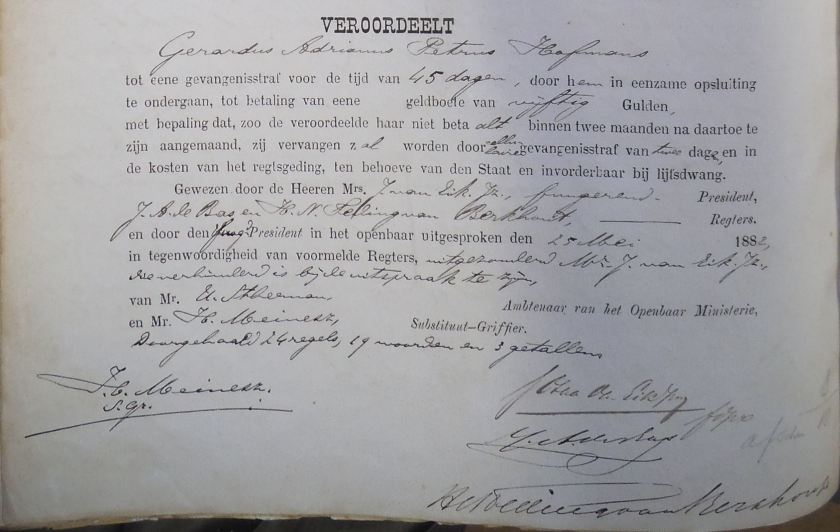 VEROORDEELT
Gerardus Adrianus Petrus Hofmans
tot eene gevangenisstraf voor de tijd van 45 dagen, door hem in eenzame opsluiting
te ondergaan, tot betaling van eene geldboete van vijftig Gulden,
met bepaling dat, zoo de veroordeelde haar niet betaalt binnen twee maanden na daartoe te
zijn aangemaand, zij vervangen zal worden door gevangenisstraf van twee dagen en in
de kosten van het regtsgeding, ten behoeve van den Staat en invorderbaar bij lijfsdwang.
Gewezen door de Heeren Mrs. J. van Eik Jz., fungerend President,
J. A. de Bas en H. N. Tellingvan Berkhout, Regters.
en door den fung. President in het openbaar uitgesproken den 25 Mei 1882,
in tegenwoordigheid van voormelde Regters, uitgezonderd Mr. J. van Eik Jz.,
die verhinderd is bij de uitspraak te zijn,
van Mr. Ambtenaar van het Openbaar Ministerie,
en Mr. H. Meinesz, Substituut-Griffier.
Doorgehaald 24 regels, 19 woorden en 3 getallen
H. Meinesz.
S. Gr.